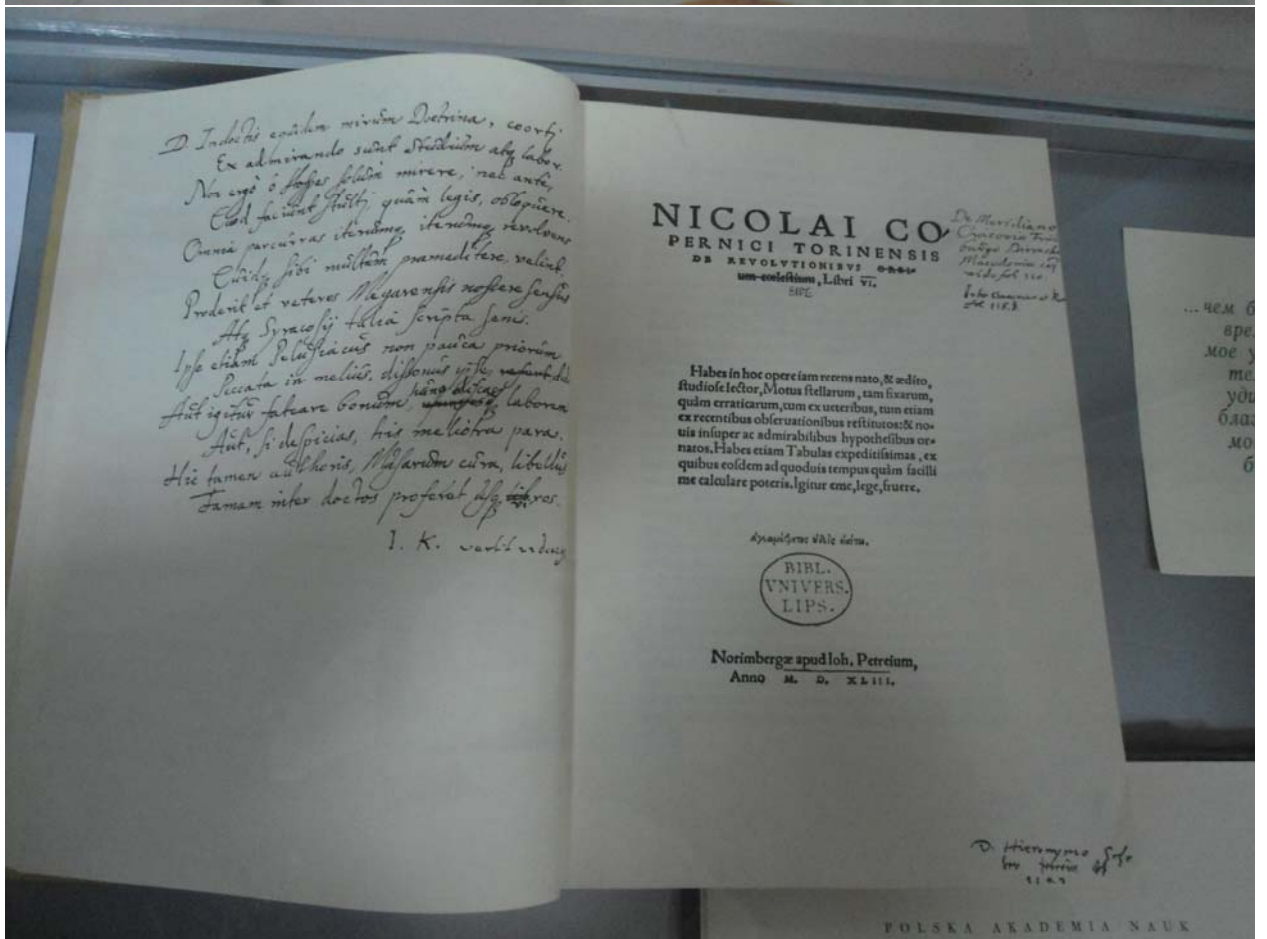 D. Indoctis equidem mirum Doctrina, coortj
Ex admirando sunt studium atq labor.
Non ergo ô Hospes solum mirere, nec ante,
Quod faciunt stultj quàm legis, obloquere.
Omnia percurras iterumq iterumq revolvens
Quidq sibi multùm praemeditere, velint.
Proderit et veteres Megarensis noscere sensus
Atq Syracosij talia scripta senis.
Ipse etiam Pelusiacus non pauca priorum
Peccata in melius, dissonus ipse,
Aut igitur fateare bonum, laborem
Aut, si despicias, tris meliora para.
Hic tamen authoris, Musarum cura, libellus
Famam inter doctos proferet usq
I. K.
NICOLAI CO
PERNICI TORINENSIS
DE REVOLVTIONIBVS ORBI-
um cœlestium, Libri VI.
De Meridiano
Cracoviæ
Macedoniæ
Habes in hoc opere iam recens nato, & ædito,
studiose lector, Motus stellarum, tam fixarum,
quàm erraticarum, cum ex ueteribus, tum etiam
ex recentibus obseruationibus restitutos: & no-
uis insuper ac admirabilibus hypothesibus or-
natos. Habes etiam Tabulas expeditissimas, ex
quibus eosdem ad quoduis tempus quàm facilli
me calculare poteris. Igitur eme, lege, fruere.
ἀγεωμέτρητος οὐδεὶς εἰσίτω.
BIBL.
VNIVERS.
LIPS.
Norimbergæ apud Ioh. Petreium,
Anno M. D. XLIII.
D. Hieronymo
... чем б
вре
мое у
те
уди
благ
мо
б
POLSKA AKADEMIA NAUK